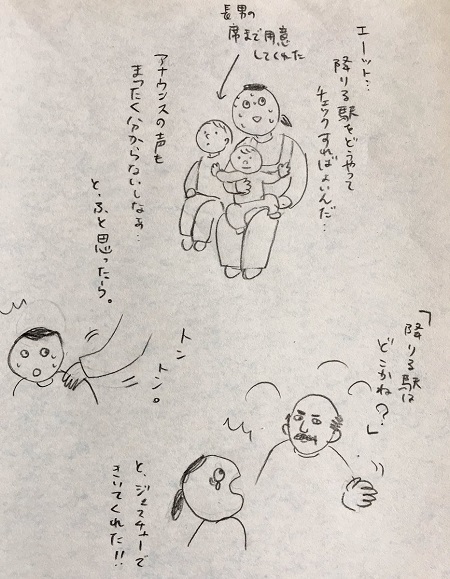 エーット…
降りる駅をどうやって
チェックすればよいんだ…
長男の
席まで用意
してくれた
アナウンスの声も
まったく分からないしなぁ…
と、ふと思ったら。
トン
トン。
「降りる駅は
どこかね?」
と、ジェスチャーで
きいてくれた!!